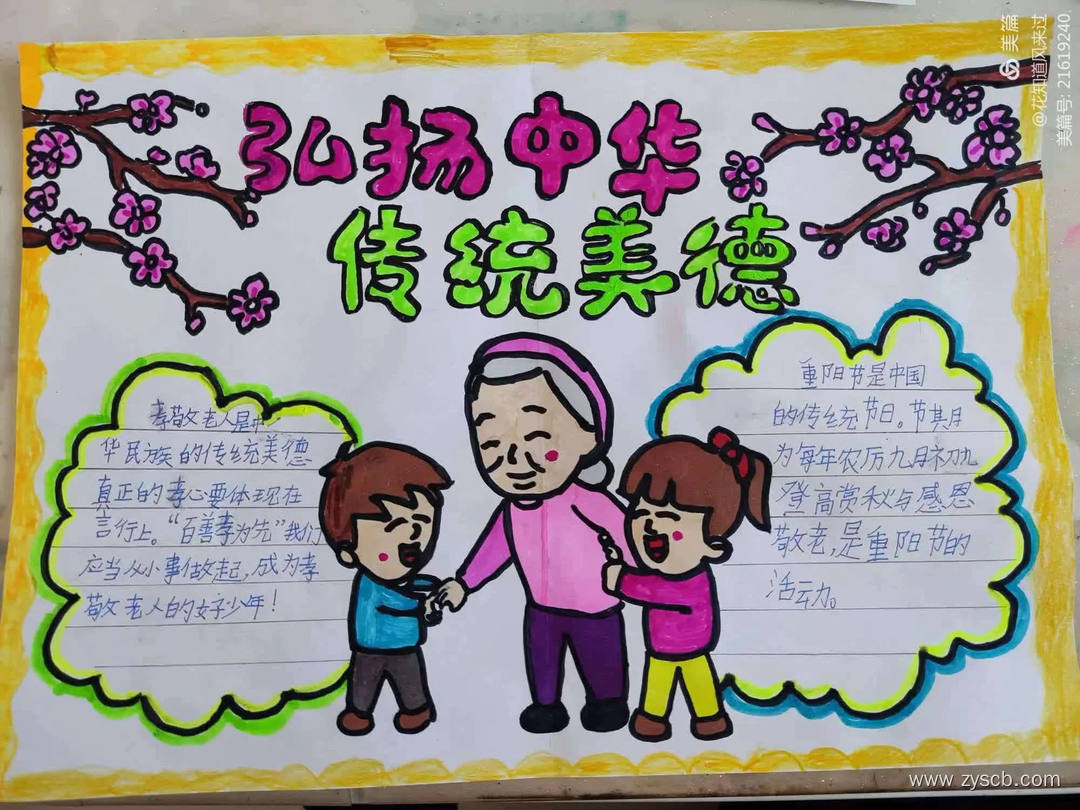 弘扬中华
传统美德
孝敬老人是中
华民族的传统美德
真正的孝心要体现在
言行上。“百善孝为先”我们
应当从小事做起,成为孝
敬老人的好少年!
重阳节是中国
的传统节日。节其月
为每年农历九月初九
登高赏秋与感恩
敬老,是重阳节的
活动。
美篇
@花知道风来过
美篇号: 21619240
www.zyscb.com